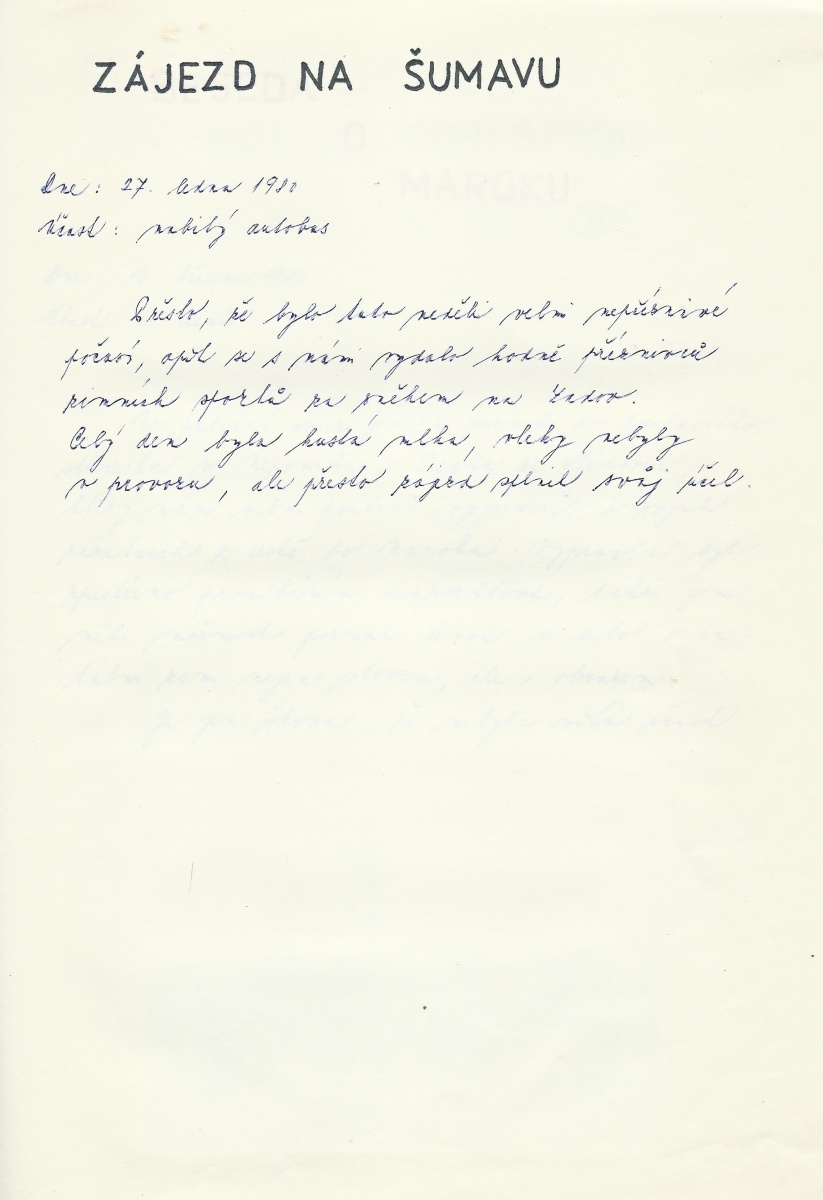 ZÁJEZD NA ŠUMAVU
Dne: 27. ledna 1980
Účast: nabitý autobus
Přesto, že bylo tuto neděli velmi nepříznivé
počasí, opět se s námi vydalo hodně příznivců
zimních sportů za sněhem na Zadov.
Celý den byla hustá mlha, vleky nebyly
v provozu, ale přesto zájezd splnil svůj účel.